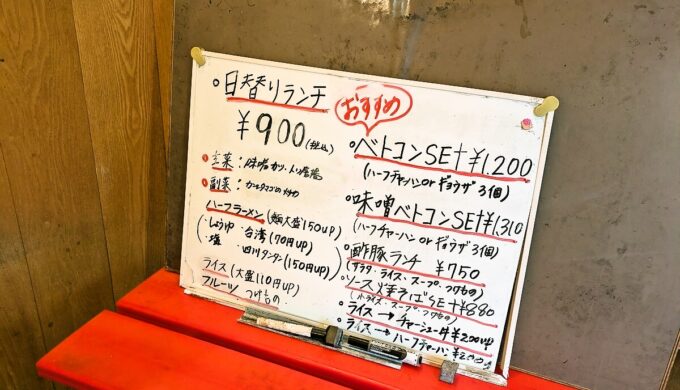 日替りランチ
¥900(税込)
主菜:味噌カツ・
副菜:
ハーフラーメン(麺大盛150UP)
・しょうゆ ・台湾(70円UP)
・塩 ・四川タンタン(150円UP)
ライス(大盛110円UP)
フルーツ つけもの
おすすめ
ベトコンSET¥1,200
(ハーフチャーハンorギョウザ3個)
味噌ベトコンSET¥1,310
(ハーフチャーハンorギョウザ3個)
酢豚ランチ ¥750
(サラダ・ライス、スープ、つけもの)
ソース焼そばSET¥880
ライス、スープ、つけもの)
ライス→チャーシュー丼¥200UP
ライス→ハーフチャーハン¥200UP